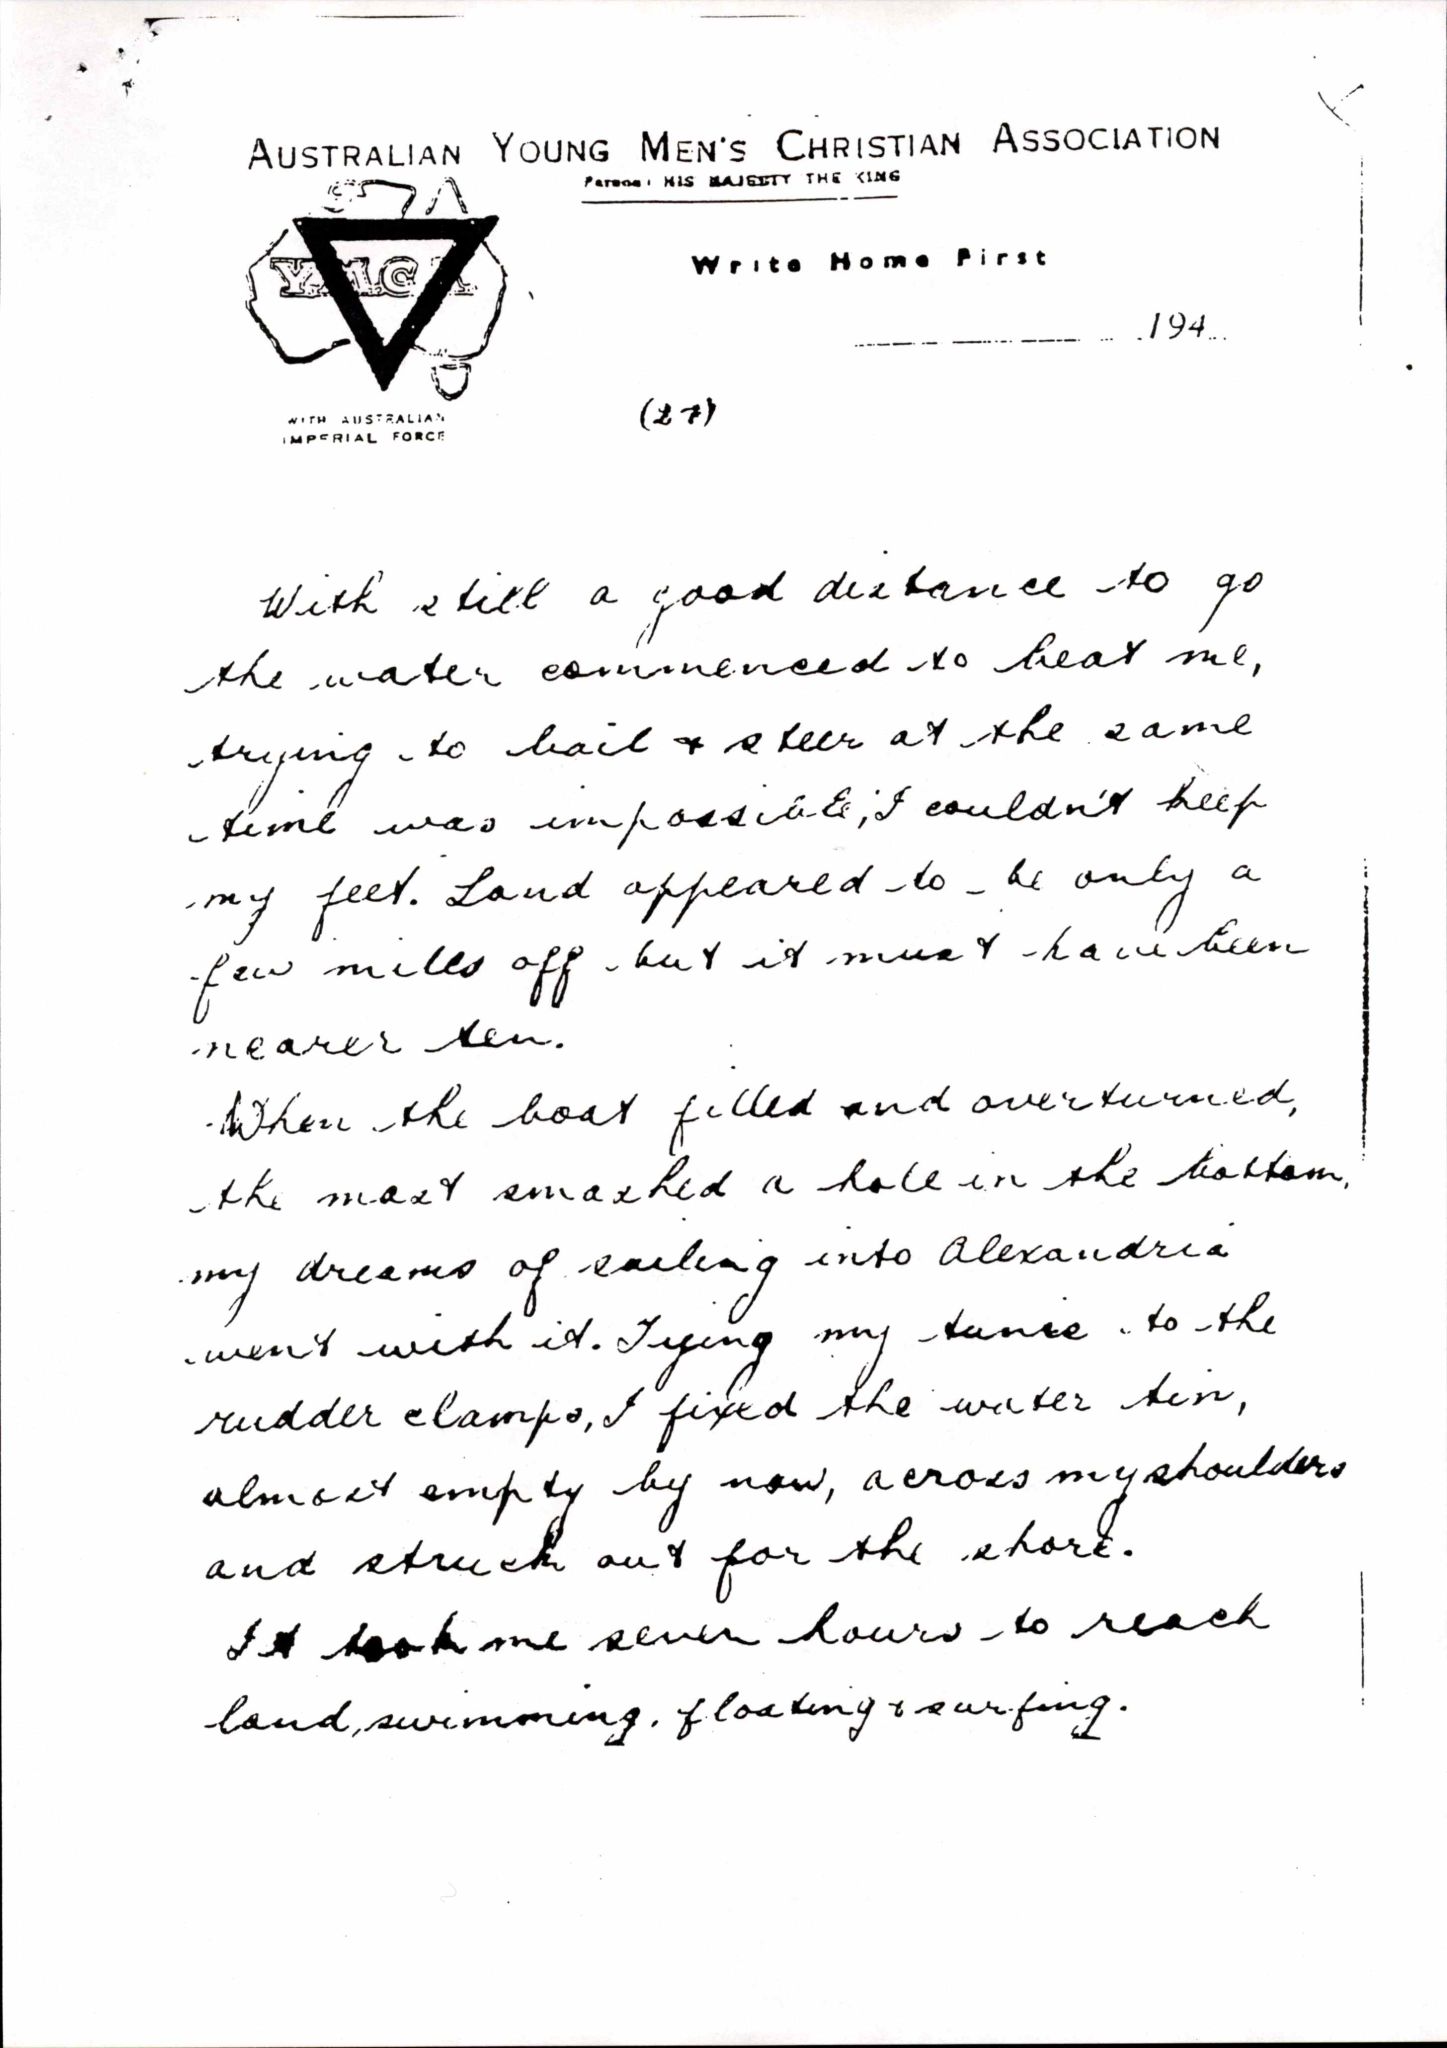 AUSTRALIAN YOUNG MEN'S CHRISTIAN ASSOCIATION
Patron: HIS MAJESTY THE KING
YMCA
Write Home First
194
WITH AUSTRALIAN
IMPERIAL FORCE
(27)
With still a good distance to go
the water commenced to beat me,
trying to bail & steer at the same
time was impossible; I couldn't keep
my feet. Land appeared to be only a
few miles off but it must have been
nearer ten.
When the boat filled and overturned,
the mast smashed a hole in the bottom,
my dreams of sailing into Alexandria
went with it. Tying my tunic to the
rudder clamps, I fixed the water tin,
almost empty by now, across my shoulders
and struck out for the shore.
It took me seven hours to reach
land, swimming, floating & surfing.